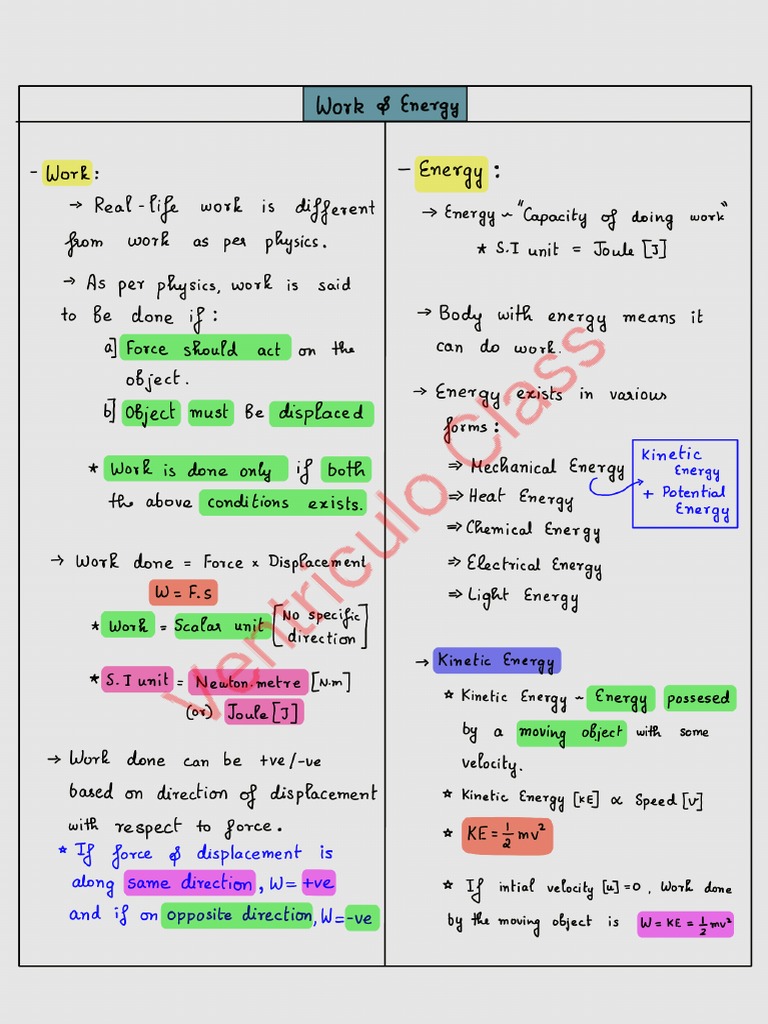 Work & Energy
- Work:
→ Real-life work is different
from work as per physics.
→ As per physics, work is said
to Be done if:
a] Force should act on the
object.
b] Object must Be displaced
* Work is done only if both
the above conditions exists.
→ Work done = Force × Displacement
W = F.s
* Work = Scalar unit [No specific
direction]
* S.I unit = Newton.metre [N.m]
(or) Joule [J]
→ Work done can be +ve/-ve
based on direction of displacement
with respect to force.
* If force & displacement is
along same direction, W= +ve
and if on opposite direction, W= -ve
- Energy:
→ Energy ~ "Capacity of doing work"
* S.I unit = Joule [J]
→ Body with energy means it
can do work.
→ Energy exists in various
forms:
⇒ Mechanical Energy
Kinetic
Energy
+ Potential
Energy
⇒ Heat Energy
⇒ Chemical Energy
⇒ Electrical Energy
⇒ Light Energy
→ Kinetic Energy
* Kinetic Energy ~ Energy possesed
by a moving object with some
velocity.
* Kinetic Energy [KE] ∝ Speed [v]
* KE = ½ mv²
* If intial velocity [u] = 0, Work done
by the moving object is W = KE = ½ mv²
Ventriculo Class